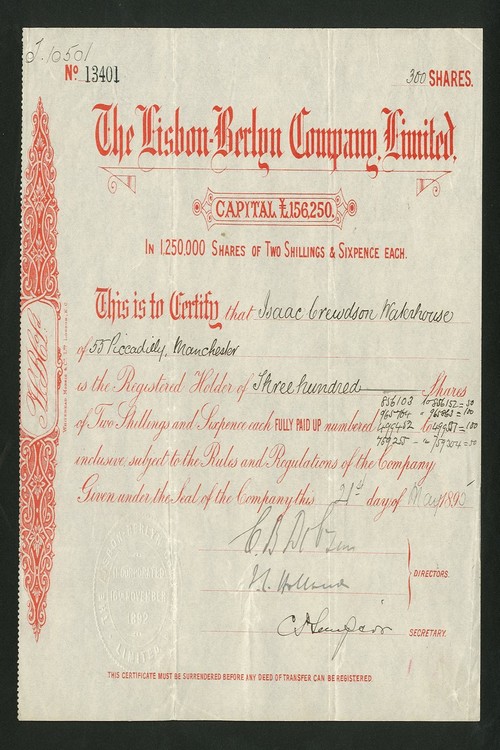 J.10501
No 13401
300 SHARES.
The Lisbon-Berlyn Company, Limited.
CAPITAL £156,250.
IN 1,250,000 SHARES OF TWO SHILLINGS & SIXPENCE EACH.
This is to Certify that Isaac Crewdson Waterhouse
of 55 Piccadilly, Manchester
is the Registered Holder of Three hundred Shares
of Two Shillings and Sixpence each FULLY PAID UP numbered
inclusive subject to the Rules and Regulations of the Company
Given under the Seal of the Company this 21st day of May 1895
DIRECTORS.
J. Holland
SECRETARY.
INCORPORATED
NOVEMBER
1892
LIMITED
THIS CERTIFICATE MUST BE SURRENDERED BEFORE ANY DEED OF TRANSFER CAN BE REGISTERED